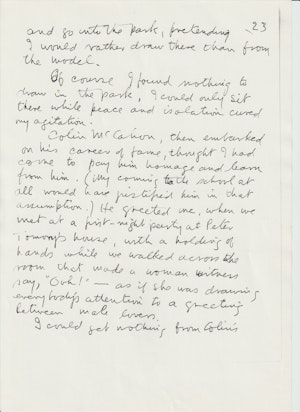 23
and go into the park, pretending
I would rather draw there than from
the model.
Of course I found nothing to
draw in the park, I could only sit
there while peace and isolation cured
my agitation.
Colin McCahon, then embarked
on his career of fame, thought I had
come to pay him homage and learn
from him. (My coming to the school at
all would have justified him in that
assumption.) He greeted me, when we
met at a first-night party at Peter
house, with a holding of
hands while we walked across the
room that made a woman witness
say, "Ooh!" — as if she was drawing
everybody's attention to a greeting
between male lovers.
I could get nothing from Colin's